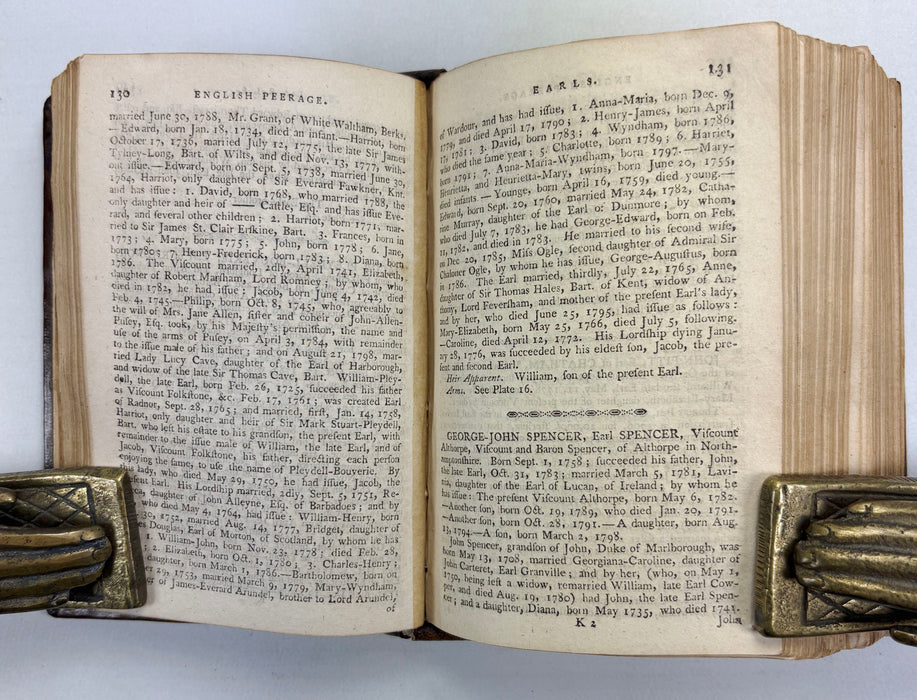 130 ENGLISH PEERAGE.
married June 30, 1788, Mr. Grant, of White Waltham, Berks,
—Edward, born Jan. 18, 1734, died an infant.—Harriot, born
October 17, 1736, married July 12, 1775, the late Sir James
Tylney-Long, Bart. of Wilts, and died Nov. 13, 1777, with-
out issue.—Edward, born on Sept. 5, 1738, married June 30,
1764, Harriot, only daughter of Sir Everard Fawkner, Knt.
and has issue: 1. David, born 1768, who married 1788, the
only daughter and heir of —— Castle, Esq. and has issue Eve-
rard, and several other children; 2. Harriot, born 1771, mar-
ried to Sir James St. Clair Erskine, Bart. 3. Frances, born in
1773; 4. Mary, born 1775; 5. John, born 1778; 6. Jane,
born 1780; 7. Henry-Frederick, born 1783; 8. Diana, born
1786. The Viscount married, 2dly, April 1741, Elizabeth,
daughter of Robert Marsham, Lord Romney; by whom, who
died in 1782, he had issue; Jacob, born June 4, 1742, died
Feb. 4, 1745.—Phillip, born Oct. 8, 1745, who, agreeably to
the will of Mrs. Jane Allen, sister and coheir of John-Allen-
Pusey, Esq. took, by his Majesty's permission, the name and
use of the arms of Pusey, on April 3, 1784, with remainder
to the issue male of his father; and on August 21, 1798, mar-
ried Lady Lucy Cave, daughter of the Earl of Harborough,
and widow of the late Sir Thomas Cave, Bart. William-Pley-
dell, the late Earl, born Feb. 26, 1725, succeeded his father
as Viscount Folkstone, &c. Feb. 17, 1761; was created Earl
of Radnor, Sept. 28, 1765; and married, first, Jan. 14, 1758,
Harriot, only daughter and heir of Sir Mark Stuart-Pleydell,
Bart. who left his estate to his grandson, the present Earl, with
remainder to the issue male of William, the late Earl, and of
Jacob, Viscount Folkstone, his father, directing each person
enjoying the same, to use the name of Pleydell-Bouverie. By
this lady, who died May 29, 1750, he had issue, Jacob, the
present Earl. His Lordship married, 2dly, Sept. 5, 1751, Re-
daughter of John Alleyne, Esq. of Barbadoes; and by
who died May 4, 1764, had issue: William-Henry, born
30, 1752, married Aug. 14, 1777, Bridget, daughter of
Douglas, Earl of Morton, of Scotland, by whom he has
1. William-John, born Nov. 23, 1778; died Feb. 28,
2. Elizabeth, born Oct. 1, 1780; 3. Charles-Henry;
daughter, born March 1, 1786.—Bartholomew, born on
29, 1753, married March 9, 1779, Mary-Wyndham,
of James-Everard Arundel, brother to Lord Arundel,
of
EARLS. 131
of Wardour, and has had issue, 1. Anna-Maria, born Dec. 9,
1779, and died April 17, 1790; 2. Henry-James, born April
17, 1781; 3. David, born 1783; 4. Wyndham, born 1786,
who died the same year; 5. Charlotte, born 1789; 6. Harriet,
born 1791; 7. Anna-Maria-Wyndham, born 1797.—Mary-
Henrietta, and Henrietta-Mary, twins, born June 20, 1755,
died infants.—Younge, born April 16, 1759, died young.—
Edward, born Sept. 20, 1760, married May 24, 1782, Catha-
rine Murray, daughter of the Earl of Dunmore; by whom,
who died July 7, 1783, he had George-Edward, born on Feb.
11, 1782, and died in 1783. He married to his second wife,
on Dec 20, 1785, Miss Ogle, second daughter of Admiral Sir
Chaloner Ogle, by whom he has issue, George-Augustus, born
in 1786. The Earl married, thirdly, July 22, 1765, Anne,
daughter of Sir Thomas Hales, Bart. of Kent, widow of An-
thony, Lord Feversham, and mother of the present Earl's lady,
and by her, who died June 25, 1795, had issue as follows:
Mary-Elizabeth, born May 25, 1766, died July 5, following.
—Caroline, died April 12, 1772. His Lordship dying Janu-
ary 28, 1776, was succeeded by his eldest son, Jacob, the pre-
sent and second Earl.
Heir Apparent. William, son of the present Earl.
Arms. See Plate 16.
GEORGE-JOHN SPENCER, Earl SPENCER, Viscount
Althorpe, Viscount and Baron Spencer, of Althorpe in North-
amptonshire. Born Sept. 1, 1758; succeeded his father, John,
the late Earl, Oct. 31, 1783; married March 5, 1781, Lavi-
nia, daughter of the Earl of Lucan, of Ireland; by whom he
has issue: The present Viscount Althorpe, born May 6, 1782.
—Another son, born Oct. 19, 1789, who died Jan. 20, 1791.
—Another son, born Oct. 28, 1791.—A daughter, born Aug.
13, 1794.—A son, born March 2, 1798.
John Spencer, grandson of John, Duke of Marlborough, was
born May 13, 1708, married Georgiana-Caroline, daughter of
John Carteret, Earl Granville; and by her, (who, on May 1,
1750, being left a widow, remarried William, late Earl Cow-
per, and died Aug. 19, 1780) had John, the late Earl Spen-
cer; and a daughter, Diana, born May 1735, who died 1741.
K 2 John